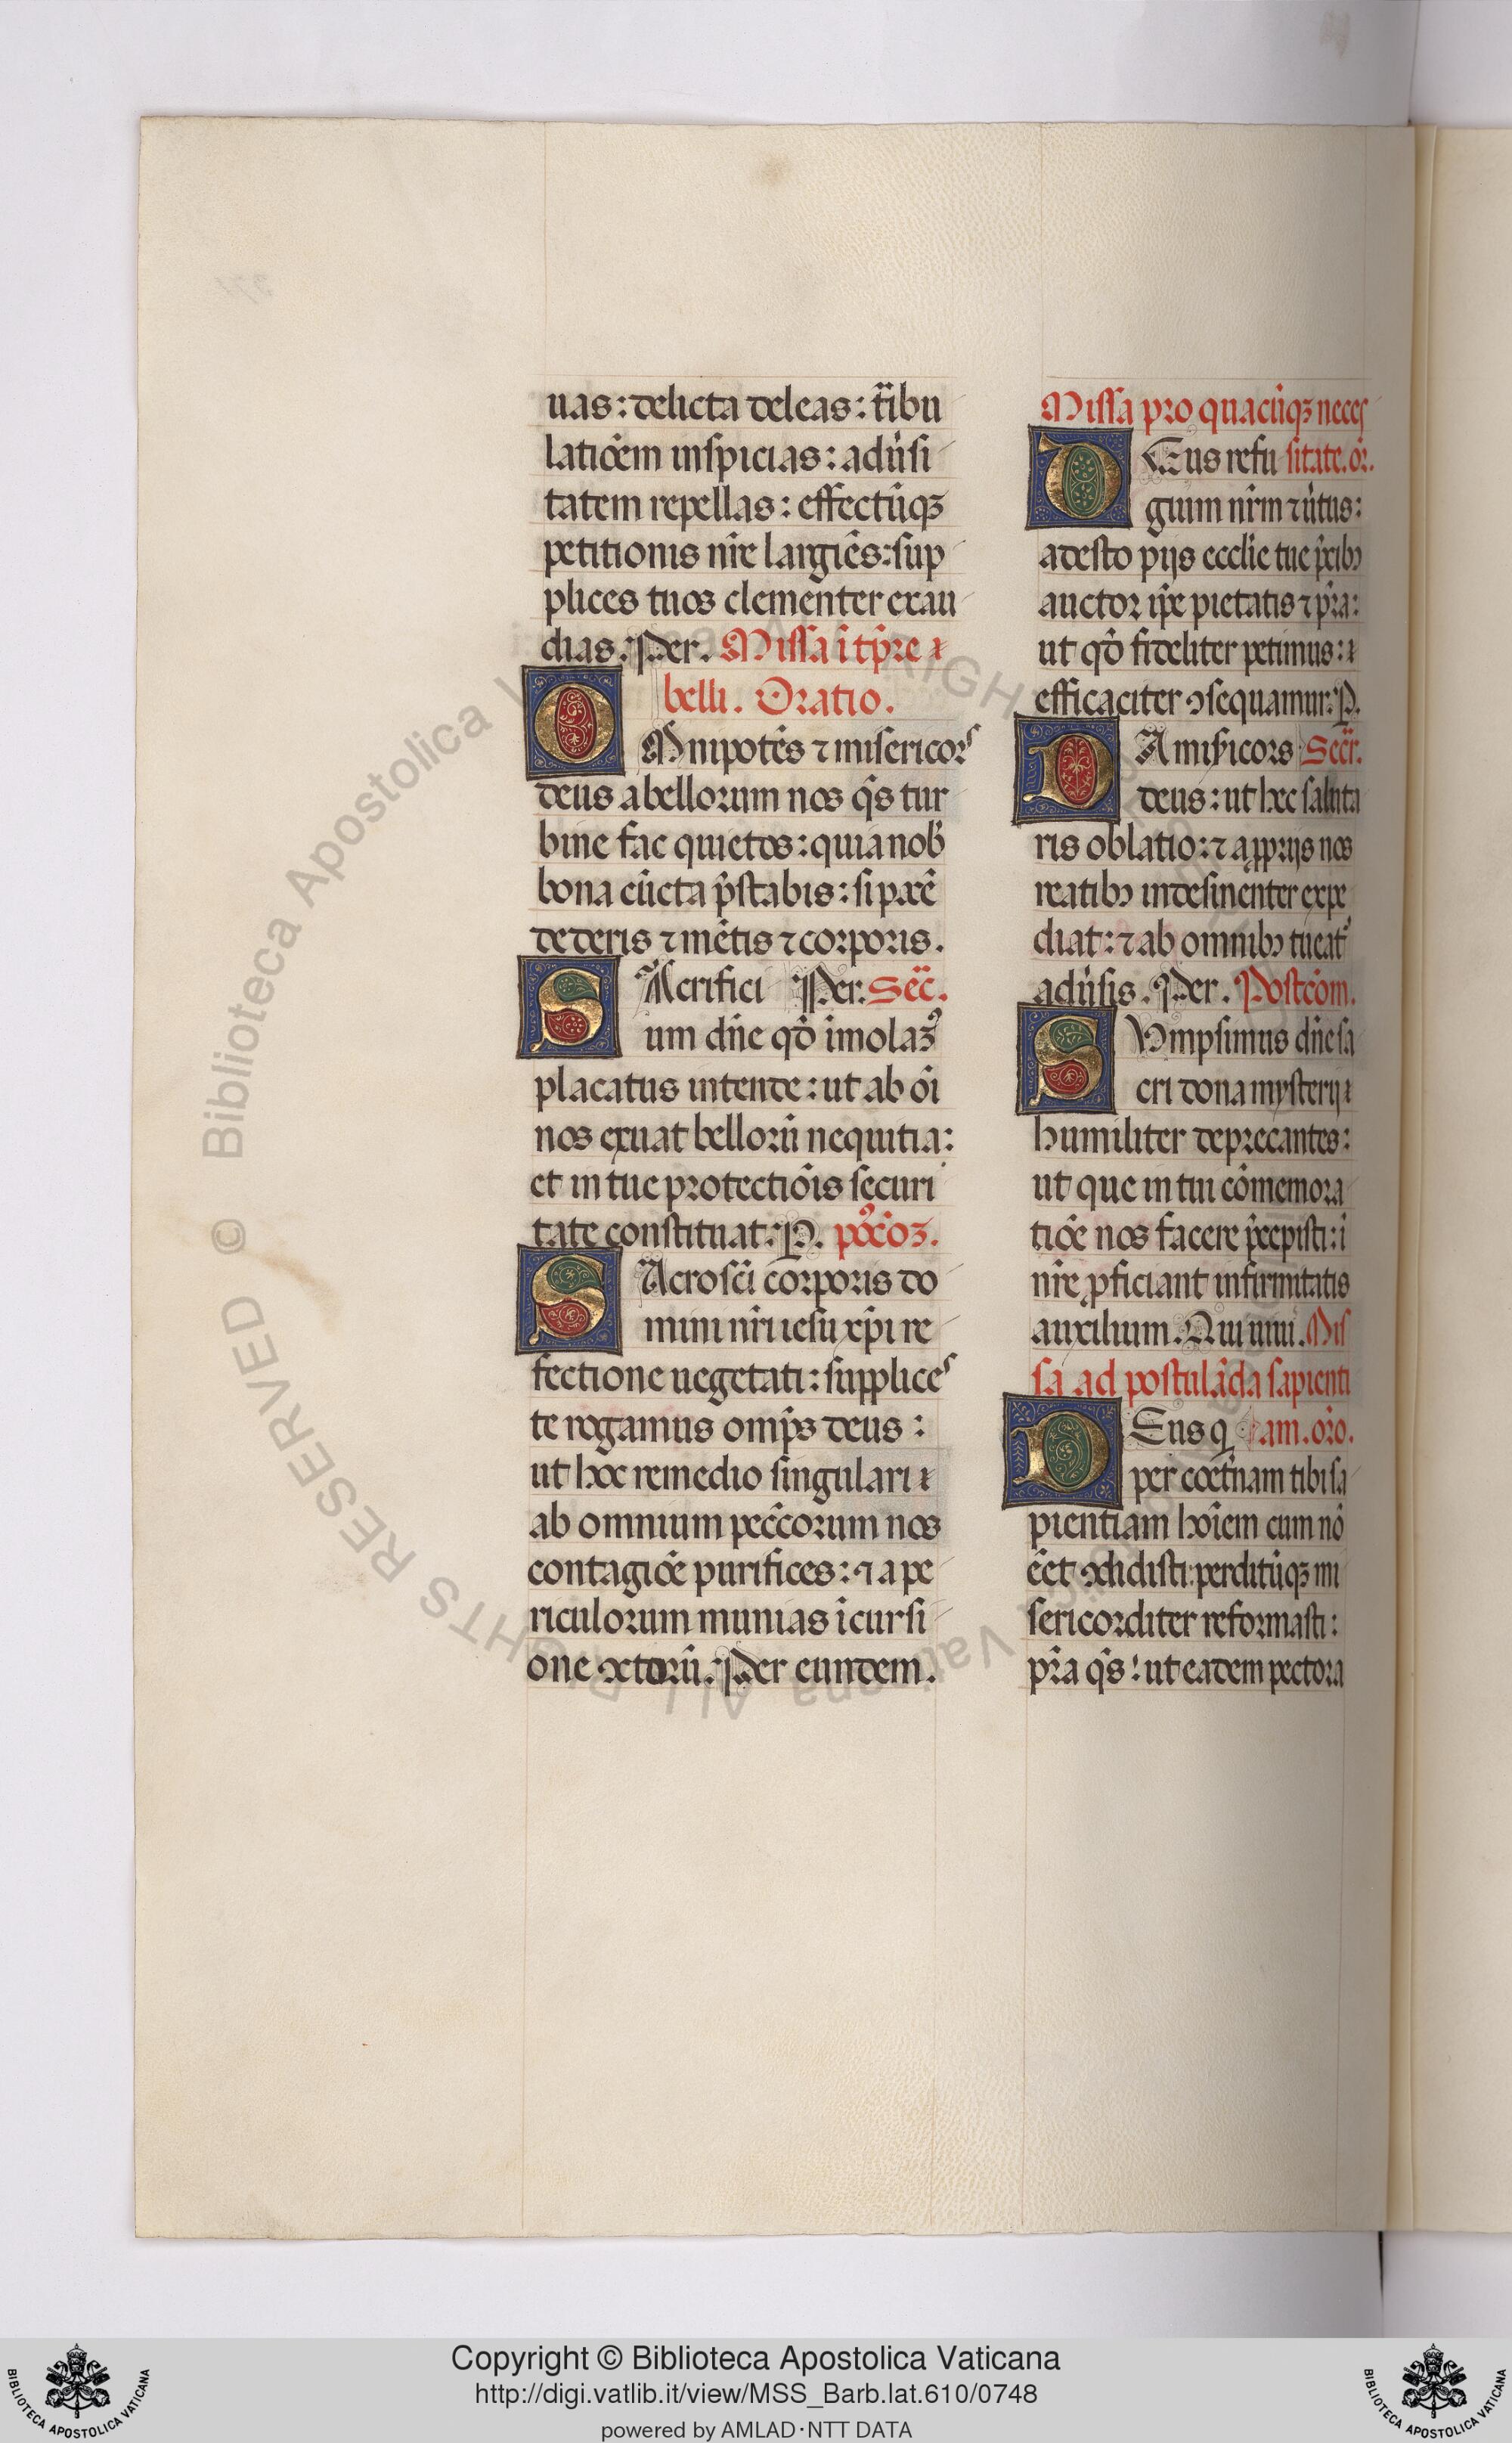 uas: delicta deleas: tr̃ibu
latiõem inspicias: adũsi
tatem repellas: effectũqꝫ
petitionis nr̃e largiẽs: sup
plices tuos clementer exau
dias. Per. Missa ĩ tp̃re
belli. Oratio.
OMnipotẽs ⁊ misericors
deus a bellorum nos q̃s tur
bine fac quietos: quia nob̃
bona cũcta p̃stabis: si pacẽ
dederis ⁊ mẽtis ⁊ corporis.
SAcrifici Per. Secr̃.
um dñe qd̃ imolaꝫ
placatus intende: ut ab oĩ
nos exuat bellorũ nequitia:
et in tue protectiõis securi
tate constituat. P. pꝯ̃coꝫ.
SAcrosc̃i corporis do
mini nr̃i iesu xp̃i re
fectione uegetati: supplices
te rogamus omp̃s deus:
ut hoc remedio singulari
ab omnium pecc̃orum nos
contagiõe purifices: ⁊ a pe
riculorum munias ĩcursi
one ꝯctorũ. Per eundem.
Missa pro quacũqꝫ neces
DEus refu sitate. or̃.
gium nr̃m ⁊ ũtus:
adesto pijs eccl̃ie tue p̃cibꝰ
auctor ip̃e pietatis ⁊ p̃ra:
ut qd̃ fideliter petimus:
efficaciter ꝯsequamur. P.
DA mis̃icors Secr̃.
deus: ut hec saluta
ris oblatio: ⁊ a ꝓprijs nos
reatibꝰ indesinenter expe
diat: ⁊ ab omnibꝰ tueat̃
adũsis. Per. Postcõm.
SUmpsimus dñe sa
cri dona mysterij
humiliter deprecantes:
ut que in tui cõmemora
tiõe nos facere p̃cepisti: ĩ
nr̃e ꝓficiant infirmitatis
auxilium. Qui uiui. Mis
sa ad postulãda sapienti
DEus q am. oro.
per coet̃nam tibi sa
pientiam hoĩem cum nõ
eẽt ꝯdidisti: perditũqꝫ mi
sericorditer reformasti:
p̃ra q̃s: ut eadem pectora
Copyright © Biblioteca Apostolica Vaticana
http://digi.vatlib.it/view/MSS_Barb.lat.610/0748
powered by AMLAD·NTT DATA
BIBLIOTECA APOSTOLICA VATICANA
BIBLIOTECA APOSTOLICA VATICANA